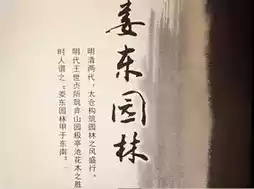 娄东园林
明清两代，太仓构筑园林之风盛行。
明代王世贞所筑弇山园极亭池花木之胜
时人谓之“娄东园林甲于东南”